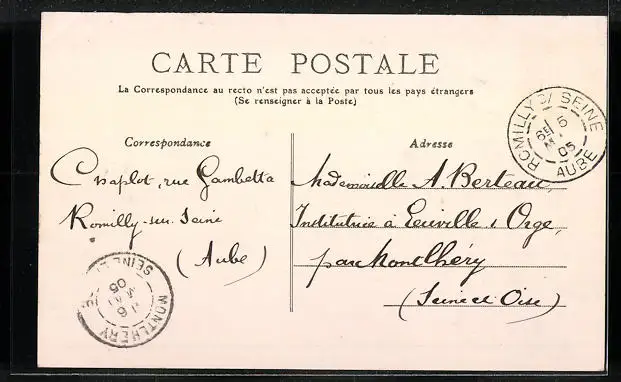 CARTE POSTALE
La Correspondance au recto n'est pas acceptée par tous les pays étrangers
(Se renseigner à la Poste)
Correspondance
Chaplot, rue Gambetta
Romilly-sur-Seine
(Aube)
Adresse
Mademoiselle A. Berteau,
Institutrice à Leuville s Orge,
par Montlhéry
(Seine et Oise)
ROMILLY S/ SEINE
5
05
AUBE
MONTLHERY
SEINE ET
6
MAI
05